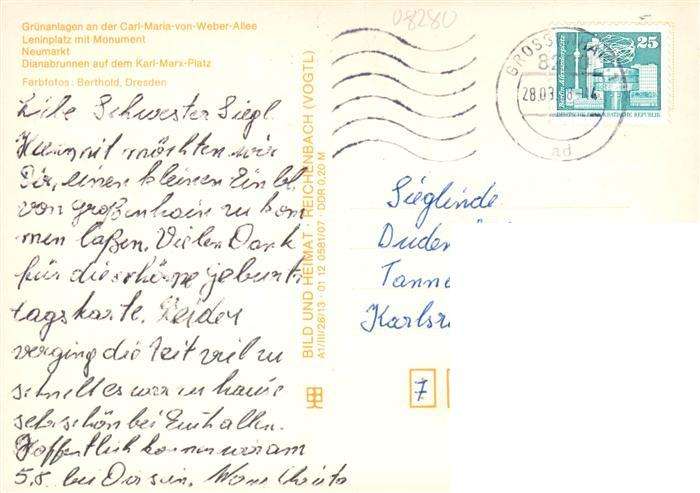 Grünanlagen an der Carl-Maria-von-Weber-Allee
Leninplatz mit Monument
Neumarkt
Dianabrunnen auf dem Karl-Marx-Platz
Farbfotos: Berthold, Dresden
08280
25
28.03.
82
BILD UND HEIMAT · REICHENBACH (VOGTL)
A1/III/26/13 01 12 0581/07 DDR 0,20 M
DEUTSCHE DEMOKRATISCHE REPUBLIK
Liebe Schwester Siegl.
Hiermit möchten wir
Dir, einen kleinen Einbl.
von Großenhain zu kom
men laßen. Vielen Dank
für die schöne geburts
tagskarte. Leider
verging die Zeit viel zu
schnell es war in
sehr schön bei Euch allen.
Hoffentlich können wir am
5.8. bei Dir sein.
Sieglinde
Duden
Tanne
Karlsr
7